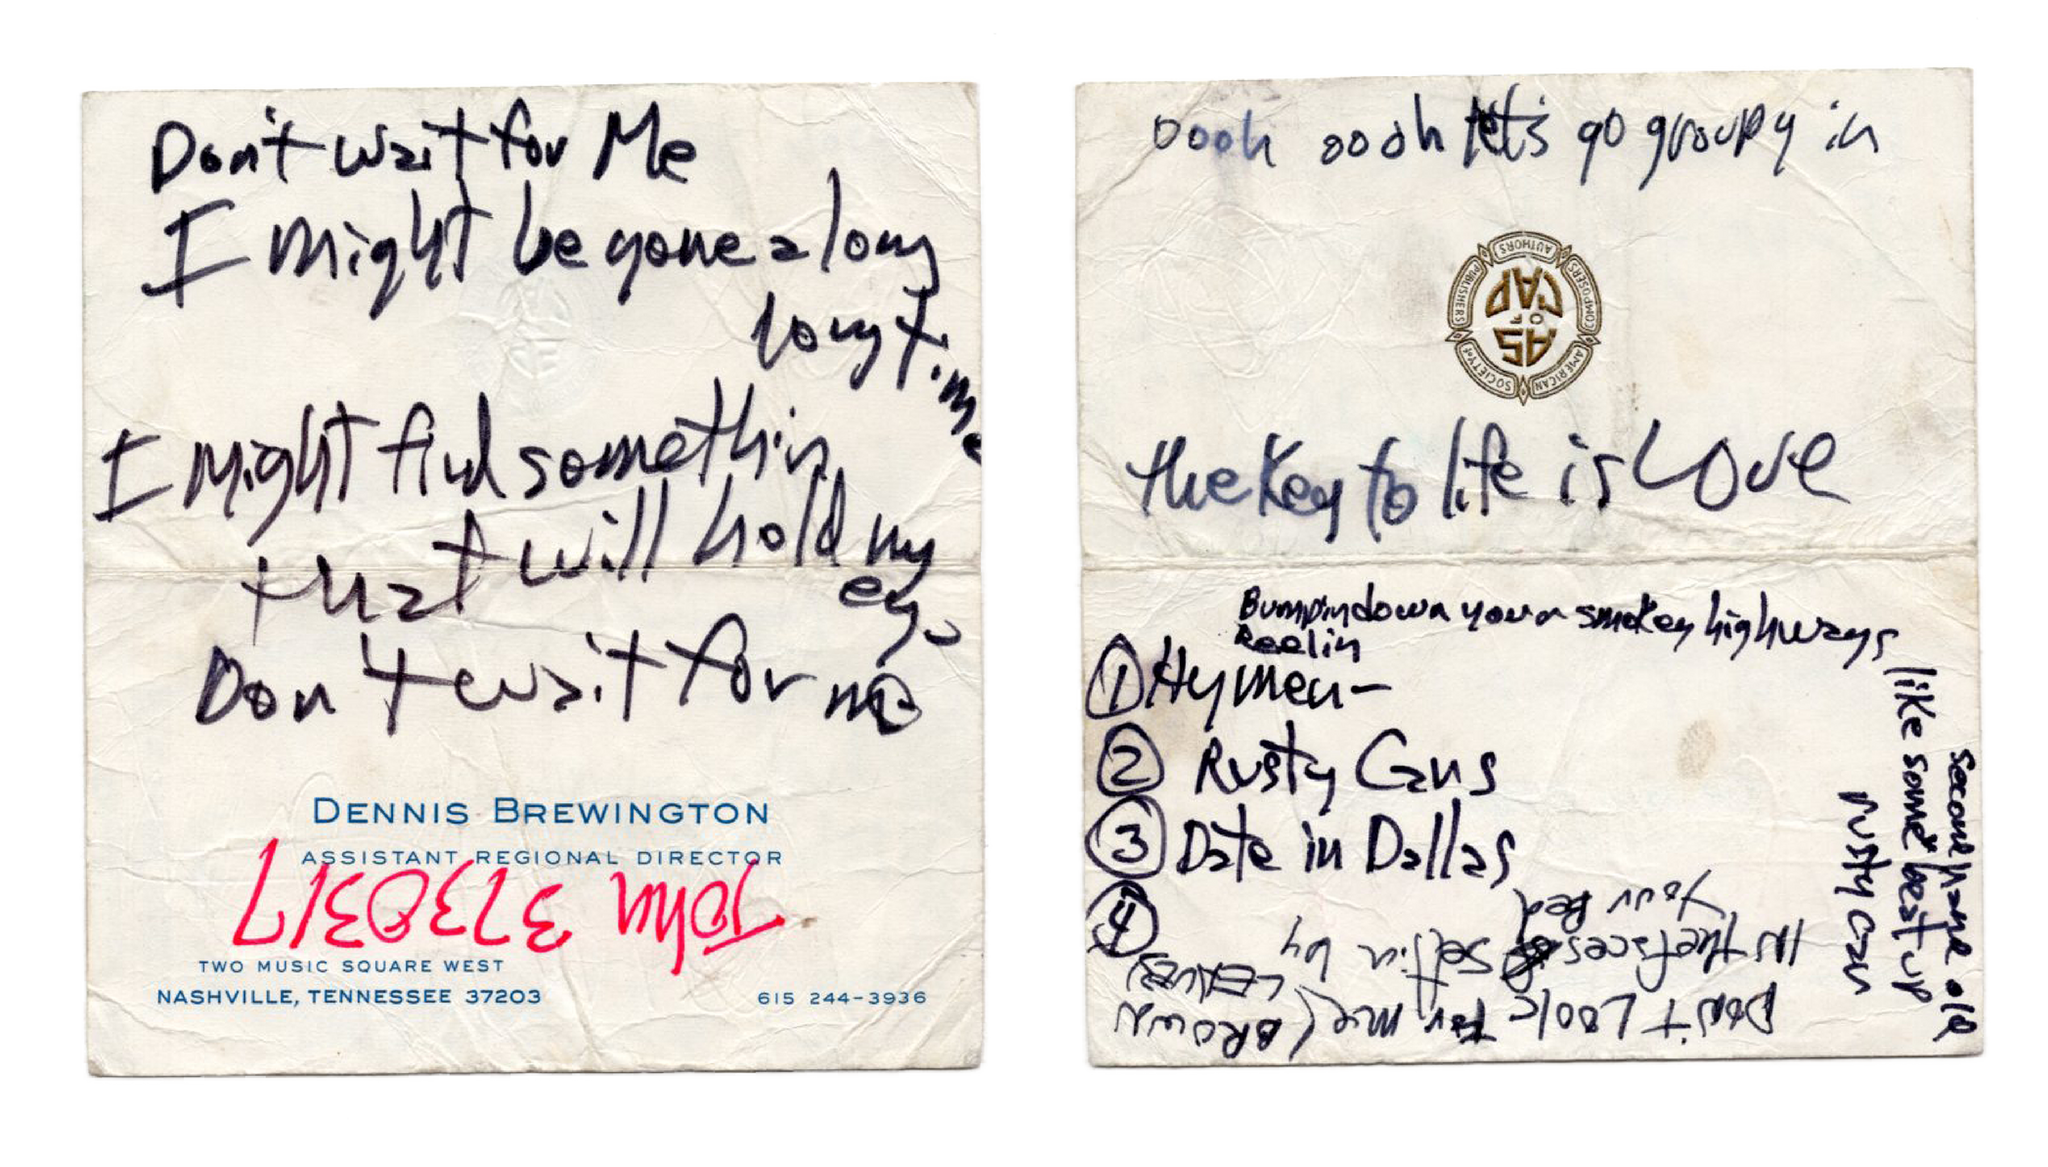 Don't wait for Me
I might be gone a long
long time
I might find somethin
that will hold my
eye
Don't wait for me
DENNIS BREWINGTON
ASSISTANT REGIONAL DIRECTOR
John 3730317
TWO MUSIC SQUARE WEST
NASHVILLE, TENNESSEE 37203
615 244-3936
oooh oooh let's go groupy in
AS
OF
CAP
AMERICAN SOCIETY OF COMPOSERS AUTHORS PUBLISHERS
the Key to life is Love
Bumpin down your smokey highways
Reelin
like some beat up
second hand old
rusty can
① Hymen-
② Rusty Cans
③ Date in Dallas
④
Don't Look for me (BROWN
LEAVES)
IN the faces settin by
Your Bed